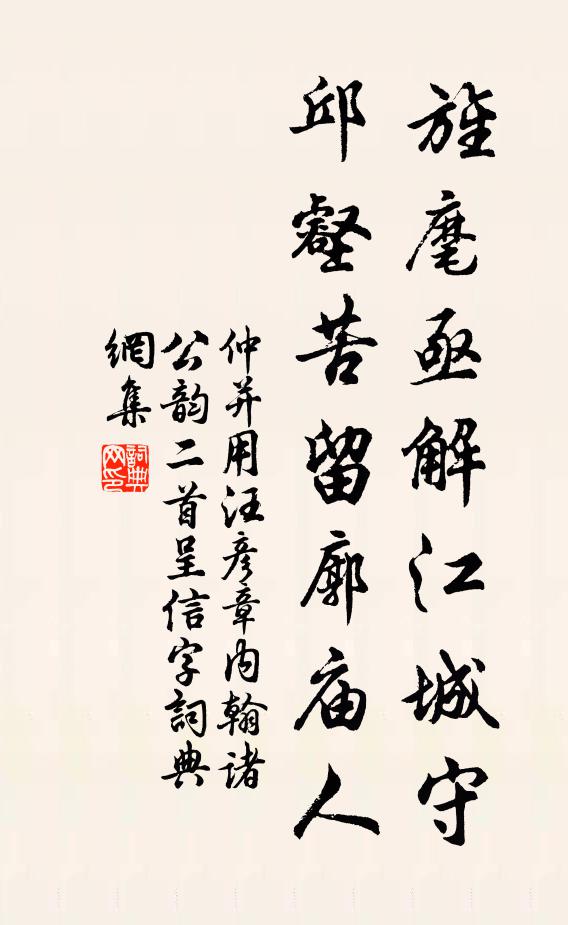 旌麾亟解江城守
邱壑苦留廓庙人
仲并用汪彦章内翰诸
公韵二首呈信字詞典
網集
詞典
网印